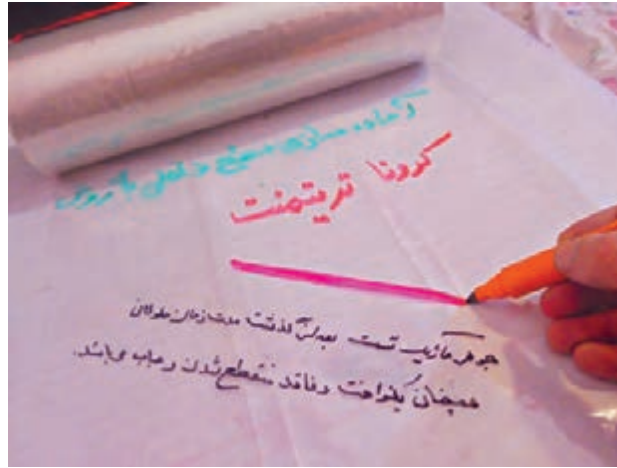 آماده سازی سطح داخلی با روش
کرونا تریتمنت
جوهر ماژیک تست بعد از گذشت مدت زمان طولانی
همچنان یکنواخت و فاقد منقطع شدن و حباب می‌باشد.